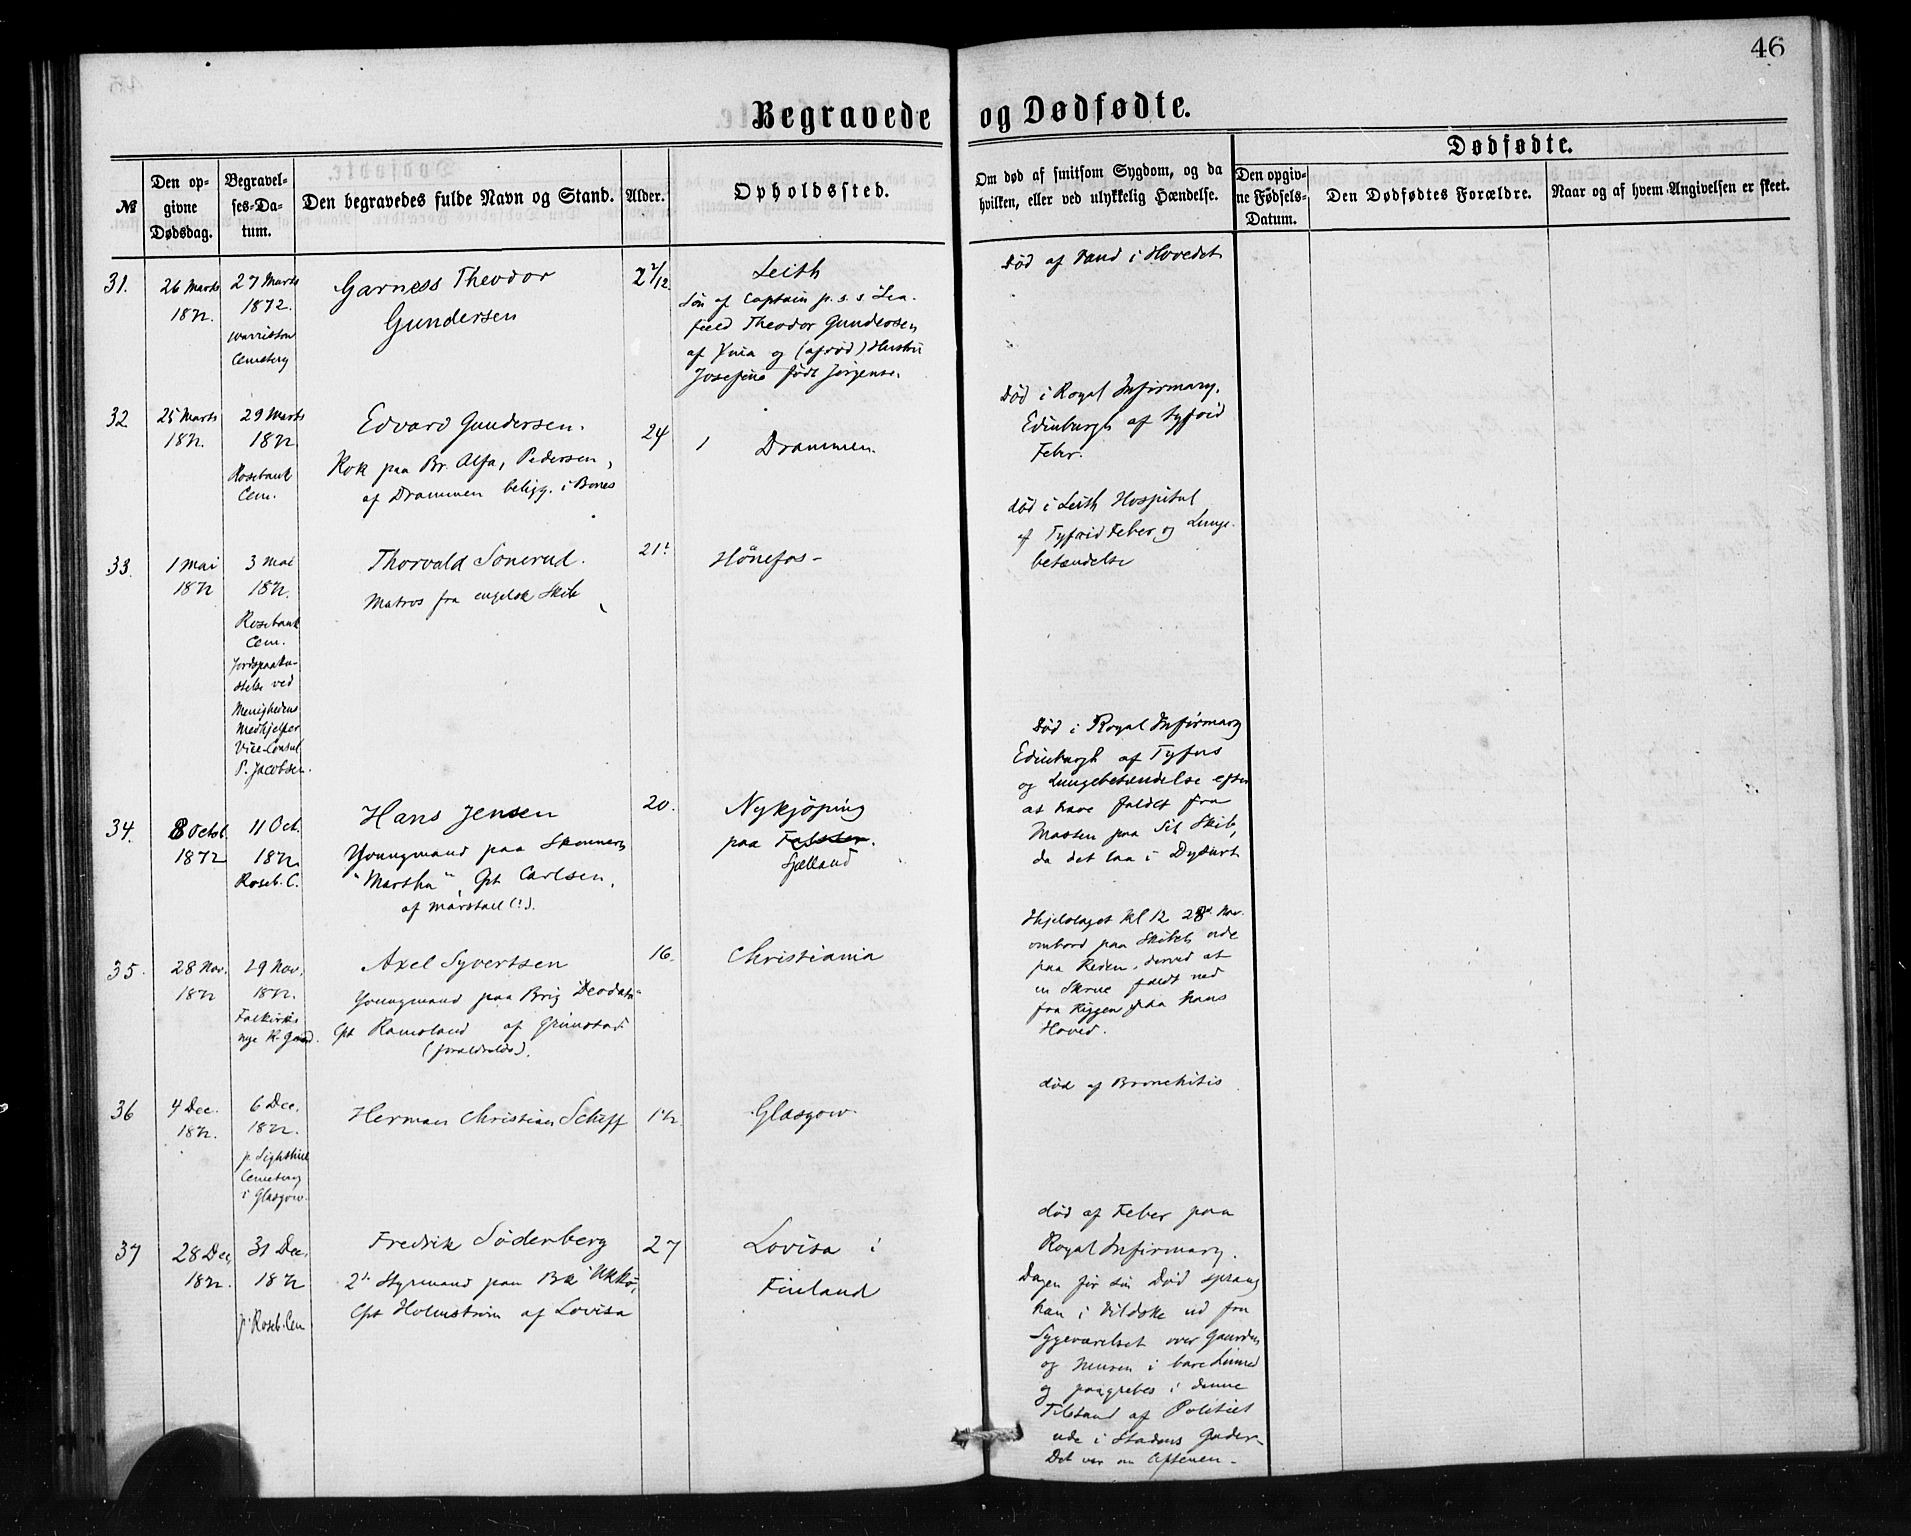 46
Begravede og Dødfødte.
№
Den opgivne Dødsdag.
Begravelses-Datum.
Den begravedes fulde Navn og Stand.
Alder.
Opholdssted.
Om død af smitsom Sygdom, og da hvilken, eller ved ulykkelig Hændelse.
Dødfødte.
Den opgivne Fødsels-Datum.
Den Dødfødtes Forældre.
Naar og af hvem Angivelsen er skeet.
31.
26 Marts
1872.
27 Marts
1872.
Warriston
Cemetery
Garness Theodor
Gundersen
2 2/12
Leith
Søn af Captain p. s.s. Lea-
field Theodor Gundersen
af og (afdød) Hustru
Josefine født Jørgensen
Død af Vand i Hovedet
32
25 Marts
1872.
29 Marts
1872
Rosebank
Cem.
Edvard Gundersen.
Kok paa Br. Alfa, Pedersen,
af Drammen beligg. i Bones
24
Drammen.
Død i Royal Infirmary.
Edinburgh af Tyfoid
Feber.
33.
1 Mai
1872
3 Mai
1872.
Rosebank
Cem.
Jordspaaka-
stelse ved
Menighedens
Medhjelper
Vice-Consul
P. Jacobsen.
Thorvald Sonerud.
Matros fra engelsk Skib
21
Hønefos-
død i Leith Hospital
af Tyfoid Feber og Lunge-
betændelse
34.
8 Octob.
1872
11 Oct.
1872
Roseb. C.
Hans Jensen
Youngmand paa Skonnert
"Martha", Cpt Carlsen,
af Marstall (!).
20.
Nykjöping
paa Falster.
Sjælland
Død i Royal Infirmary
Edinburgh af Tyfus
og Lungebetændelse efter
at have faldet fra
Masten paa Sit Skib,
da det laa i Dysart
35.
28 Nov.
1872
29 Nov.
1872.
Falkirks
nye K-Gaard.
Axel Syvertsen
Youngmand paa Brig "Deodata"
Cpt Ramsland af Grimstad
16.
Christiania
Ihjelslaget Kl 12 28de Nov.
ombord paa Skibet ude
paa Reden, derved at
en Skrue faldt ned
fra Riggen paa hans
Hoved.
36
4 Dec.
1872.
6 Dec.
1872.
p. Sighthill
Cemetery
i Glasgow.
Herman Christian Schiff
1 1/2
Glasgow.
død af Bronchitis
37
28 Dec,
1872.
31 Dec.
1872
p. Roseb. Cem
Fredrik Söderberg
2n Styrmand paa Bk "Ukko",
Cpt Holmström af Lovisa
27
Lovisa i
Finland
død af Feber paa
Royal Infirmary.
Dagen før sin Død sprang
han i Vildske ud fra
Sygeværelset over Gaarden
og Muren i bare Linned
og paagrebes i denne
Tilstand af Politiet
ude i Stadens Gader-
Det var om Aftenen-